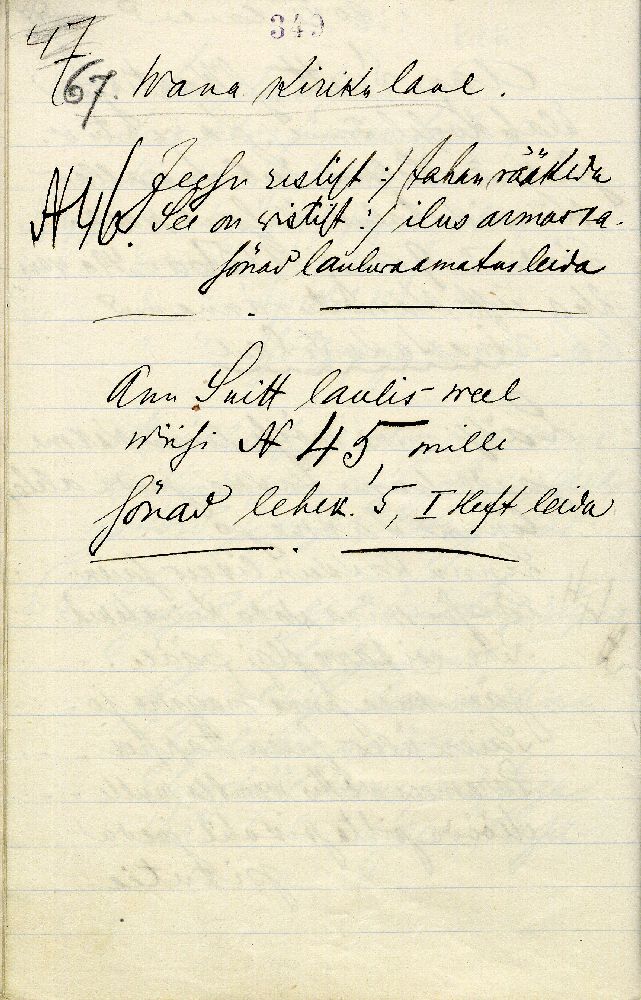 349
47
67. Wana kiriku laul.
Jeesu ristist :/ tahan rääkida
N 46. See on wistist :/ ilus armas sa.
sõnad lauluraamatus leida
Ann Suitt laulis weel
wiisi N 45, mille
sõnad lehek. 5, I Heft leida